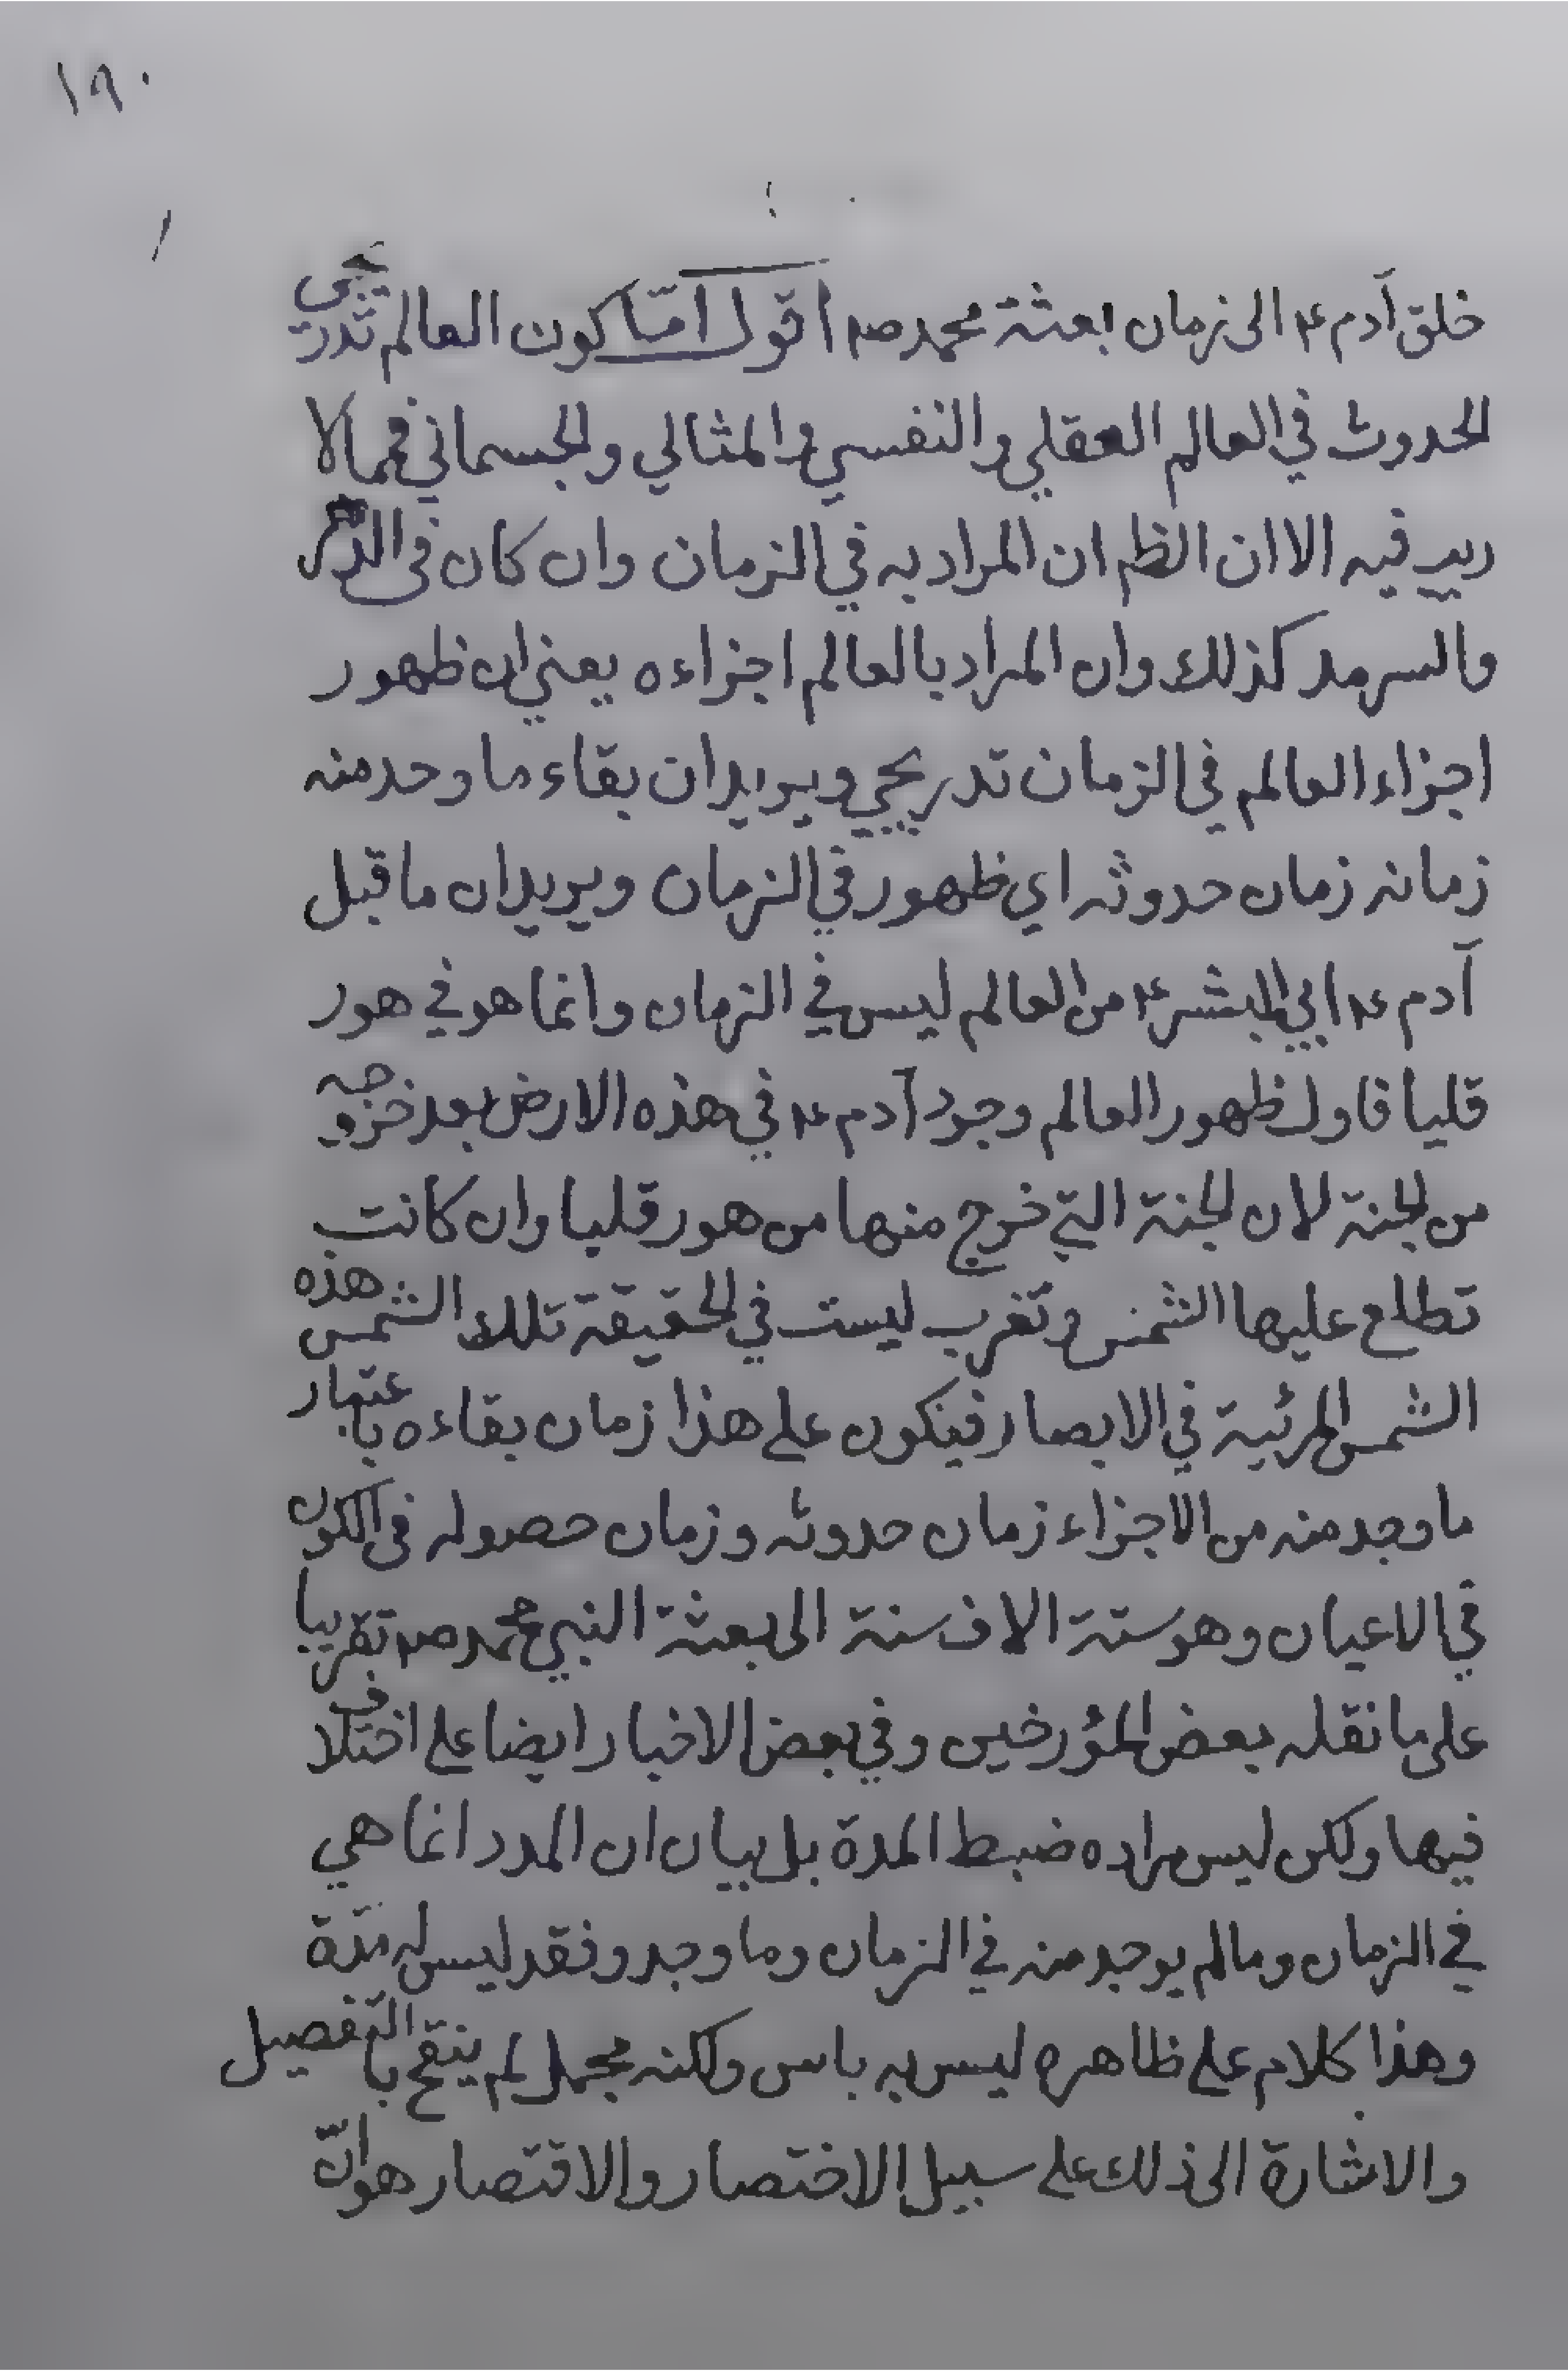 ١٩٠
خلق آدم ع الى زمان بعثة محمد ص اقول امّا كون العالم تدريجى
الحدوث في العالم العقلي والنفسي والمثالي والجسماني فمما لا
ريب فيه الا ان الظم ان المراد به في الزمان وان كان فى الدهر
والسرمد كذلك وان المراد بالعالم اجزاءه يعني ان ظهور
اجزاء العالم في الزمان تدريجي ويريد ان بقاء ما وحد منه
زمانه زمان حدوثه اي ظهور في الزمان ويريد ان ما قبل
آدم ع ابي البشر ع من العالم ليس في الزمان وانما هو في هور
قليا فاول ظهور العالم وجود آدم ع في هذه الارض بعد خروجه
من الجنة لان الجنة التي خرج منها من هورقليا وان كانت
تطلع عليها الشمس وتغرب ليست في الحقيقة تلك الشمس هذه
الشمس المرئية في الابصار فيكون على هذا زمان بقاءه باعتبار
ما وجد منه من الاجزاء زمان حدوثه وزمان حصوله فى الكون
في الاعيان وهو ستة الاف سنة الى بعثة النبي محمد ص تقريبا
على ما نقله بعض المؤرخين وفي بعض الاخبار ايضا على اختلاف
فيها ولكن ليس مراده ضبط المدة بل بيان ان المدد انما هي
في الزمان وما لم يوجد منه في الزمان وما وجد وفقد ليس له مدّة
وهذا كلام على ظاهره ليس به باس ولكنه مجمل لم ينقح بالتفصيل
والاشارة الى ذلك على سبيل الاختصار والاقتصار هو انّ